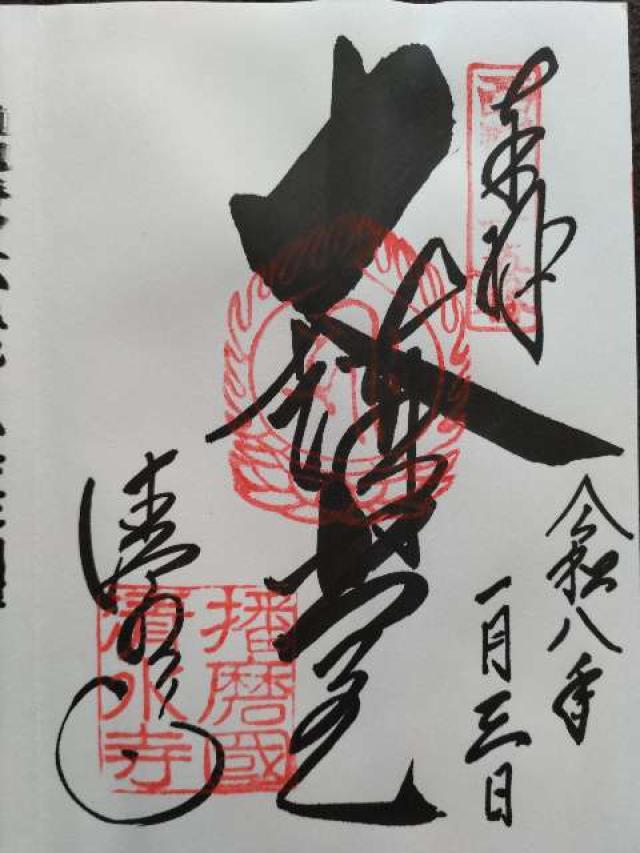 奉拝
令和八年
一月三日
大講堂
清水寺
播磨國
清水寺